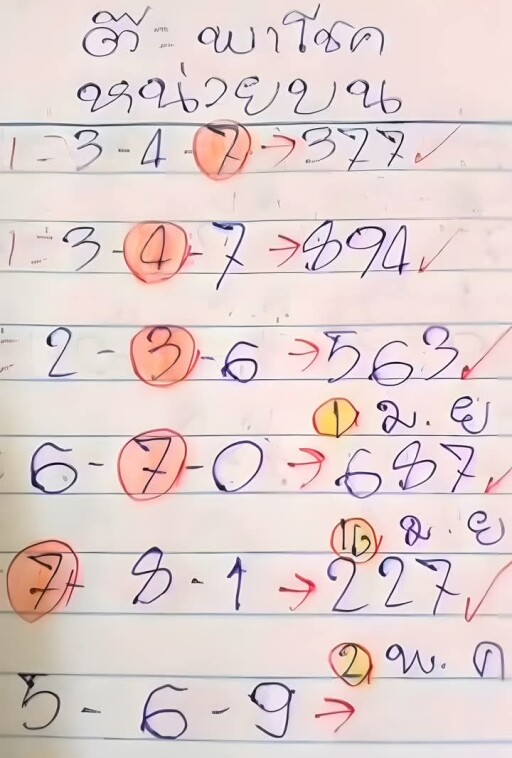 ตี๋ พาโชค
หน่วยบน
1 - 3 - 4 - 7 → 377 ✓
1 - 3 - 4 - 7 → 894 ✓
2 - 3 - 6 → 563 ✓
1 ม.ย
6 - 7 - 0 → 687 ✓
16 ม.ย
7 - 8 - 1 → 227 ✓
2 พ.ค
5 - 6 - 9 →